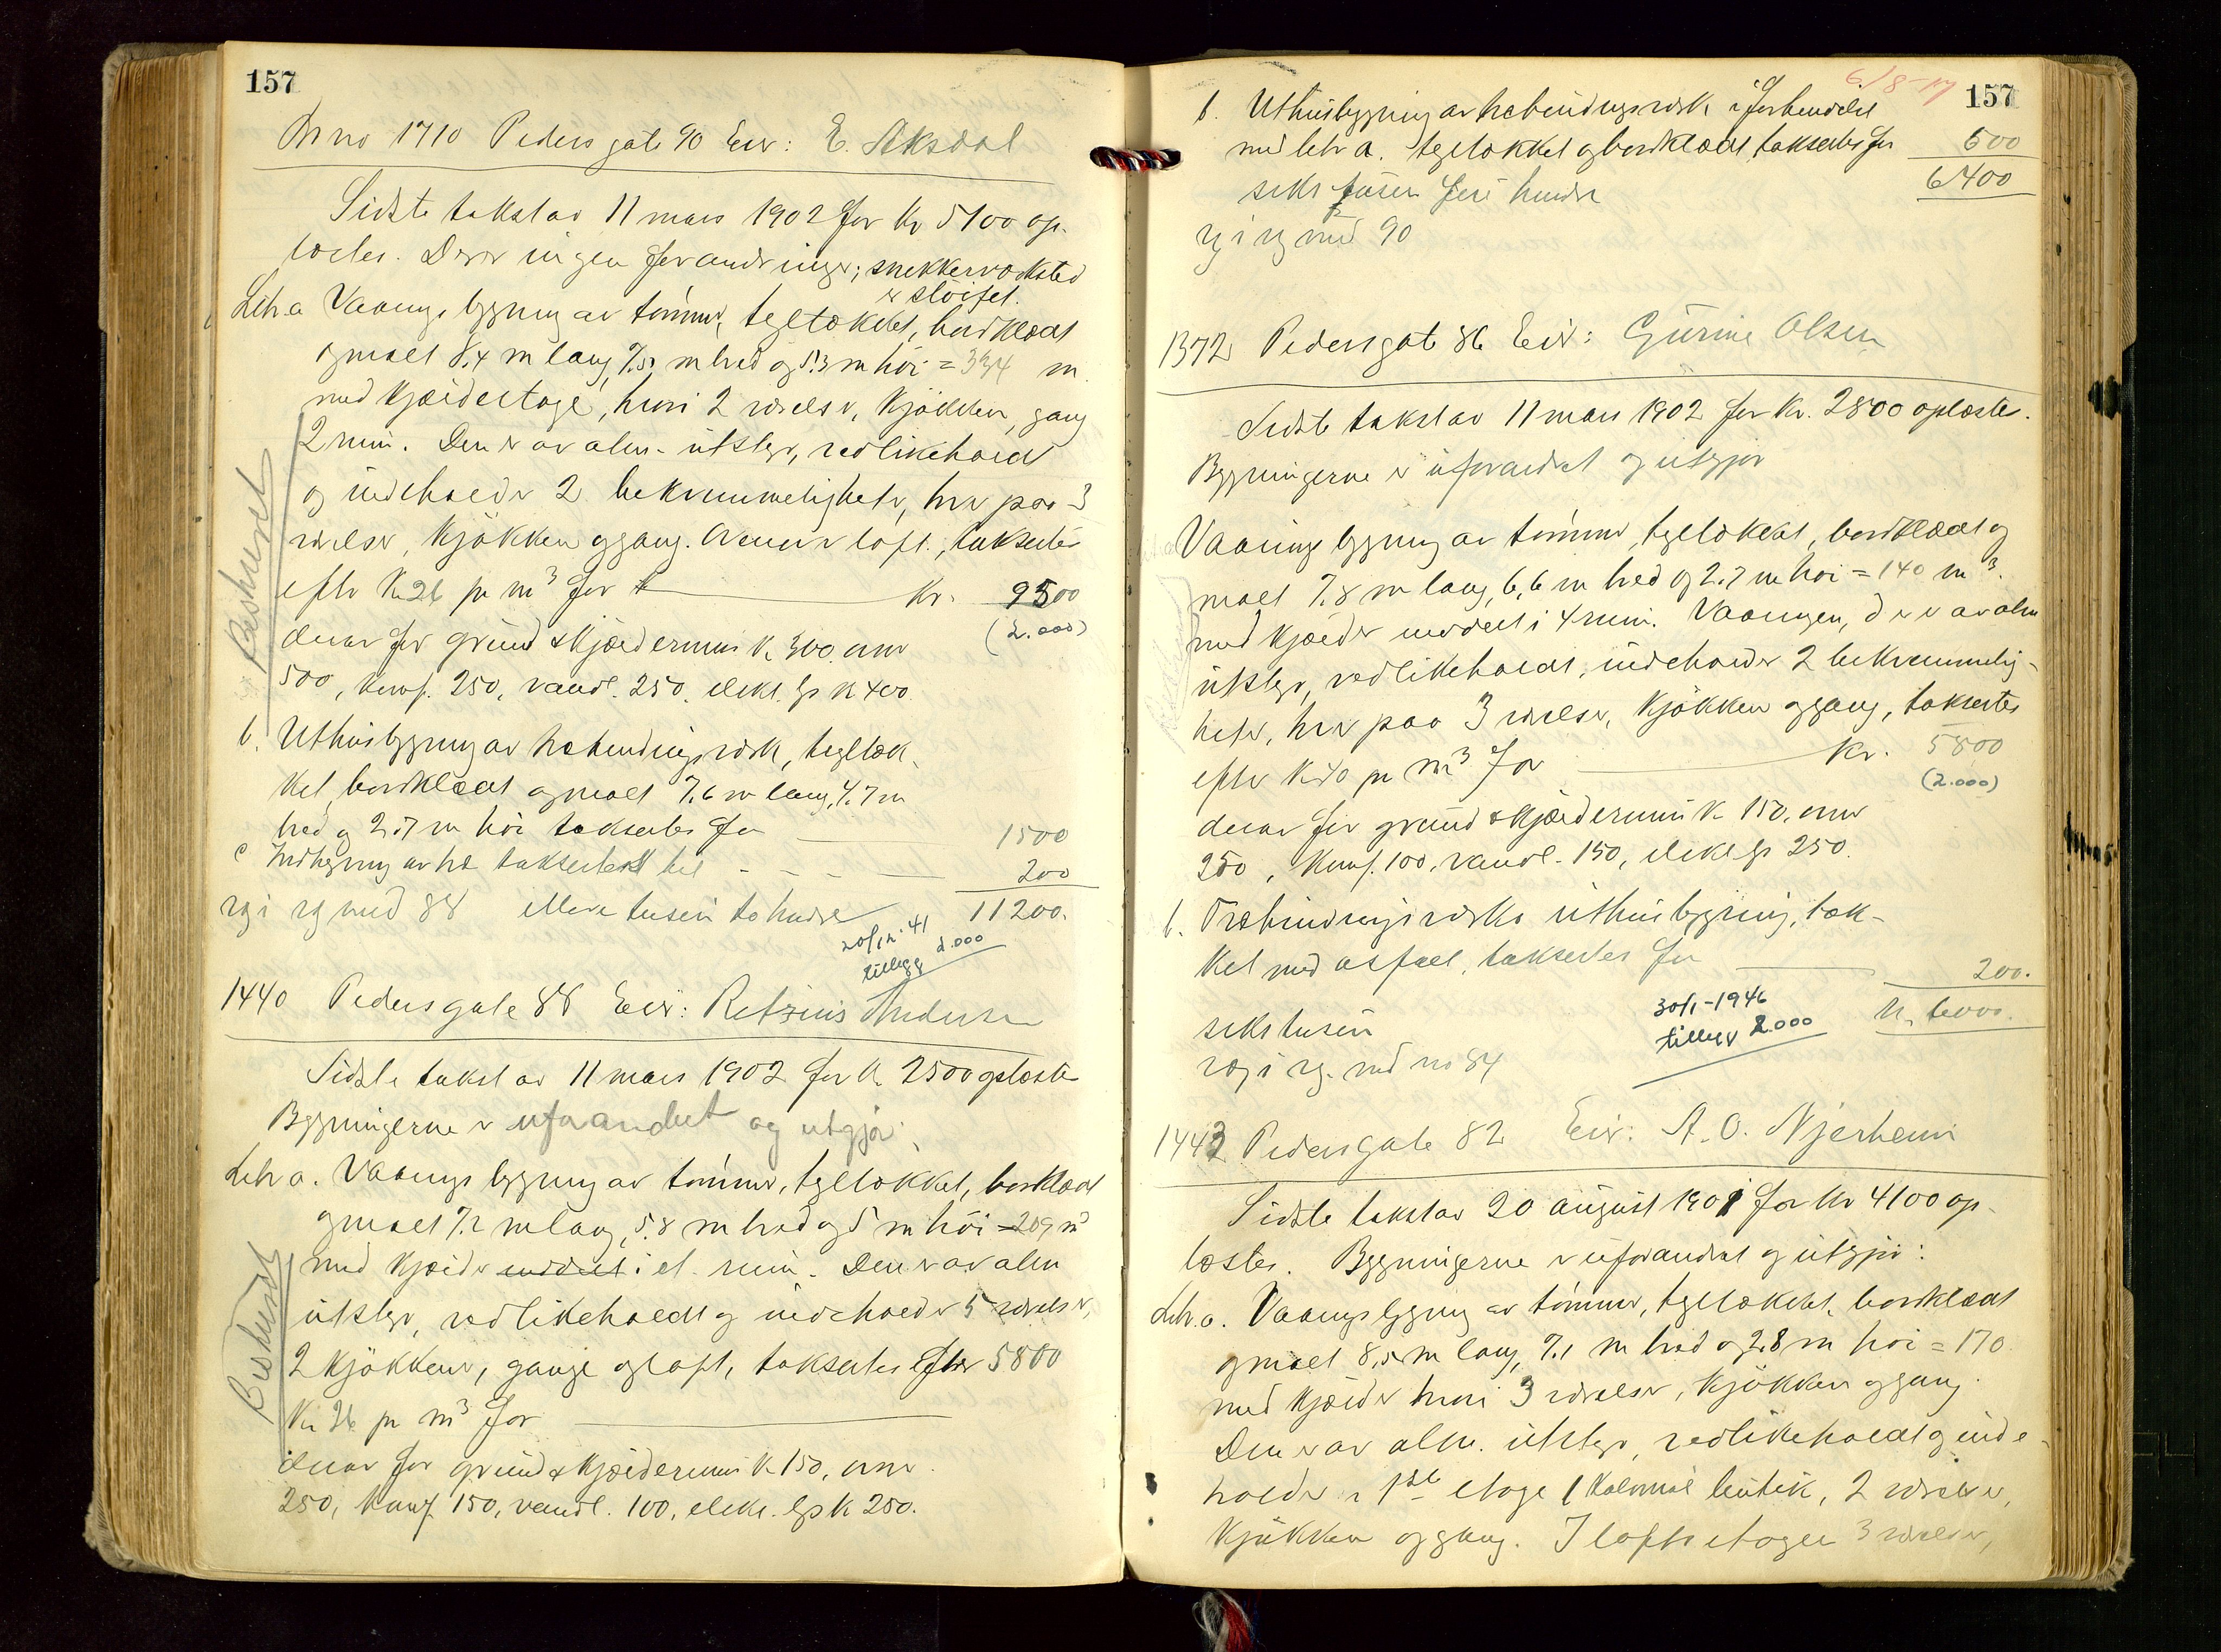 157
Mno 1710 Pedersgate 90 Eier: E. Aksdal
Sidste takst av 11 mars 1902 for Kr 5100 op-
læstes. Der er ingen forandringer; snekkerværksted
er sløifet.
Litr a Vaaningsbygning av tømmer, tegltækket, bordklædt
og malt 8.4 m lang, 7.5 m bred og 5.3 m høi = 334 m
med kjælderetage, hvori 2 værelser, kjøkken, gang
2 rum. Den er av alm. utstyr, vedlikeholdt
og indeholder 2 bekvemmeligheter, hver paa 3
værelser, kjøkken og gang. Ovenover loft, takseres
efter Kr 26 pr m³ for Kr. 9500
(2.000)
derav for grund & kjældermur Kr 300. ovner
500, komf. 250, vandl. 250. elekt. lys Kr 400.
Beskuret
b. Uthusbygning av træbindingsverk, tegltæk-
ket, bordklædt og malt 7.6 m lang, 4.7 m
bred og 2.7 m høi takseres for 1500
c Indhegning av træ takseres til 200
ryg i ryg med 88 elleve tusen to hundre 11200.
20/12-41
tillegg 2.000
1440 Pedersgate 88 Eier: Retzius Andersen
Sidste takst av 11 mars 1902 for Kr. 2500 oplæstes
Bygningerne er uforandret og utgjør:
Litr a. Vaaningsbygning av tømmer, tegltækket, bordklædt
og malt 7.2 m lang, 5.8 m bred og 5 m høi = 209 m³
med kjælder inddelt i et rum. Den er av alm
utstyr, vedlikeholdt og indeholder 5 værelser,
2 kjøkkener, gange og loft, takseres efter 5800
Kr 26 pr m³ for
derav for grund & kjældermur Kr 150, ovner
250, komf. 150, vandl. 100, elekt. lys Kr 250.
Beskuret
6/8-17
157
b. Uthusbygning av træbindingsverk i forbindelse
med litr a. teglækket og bordklædt, takseres for 600
seks tusen fire hundre 6400
ryg i ryg med 90
1372 Pedersgate 86 Eier: Gurine Olsen
Sidste takst av 11 mars 1902 for Kr. 2800 oplæstes.
Bygningerne er uforandret og utgjør
Vaaningsbygning av tømmer, teglækket, bordklædt og
malt 7.8 m lang, 6,6 m bred og 2.7 m høi = 140 m³.
med kjælder inddelt i 4 rum. Vaaningen, der er av alm
utstyr, vedlikeholdt, indeholder 2 bekvemmelig-
heter, hver paa 3 værelser, kjøkken og gang, takseres
efter Kr 40 pr m³ for Kr. 5800
(2.000)
derav for grund & kjældermur Kr 150, ovner
250, komf. 100, vandl. 150, elekt. lys 250.
b. Træbindingsverks uthusbygning, tæk-
ket med asfalt, takseres for 200.
seks tusen Kr. 6000.
30/1-1946
tillegg 2.000
ryg i ryg. med no 84
1443 Pedersgate 82 Eier: A. O. Njerheim
Sidste takst av 20 august 1901 for Kr 4100 op-
læstes. Bygningerne er uforandret og utgjør:
Litr. a. Vaaningsbygning av tømmer, teglækket, bordklædt
og malt 8,5 m lang, 7.1 m bred og 2.8 m høi = 170
med kjælder hvori 3 værelser, kjøkken og gang.
Den er av alm. utstyr, vedlikeholdt og inde-
holder i 1ste etage 1 kolonial butik, 2 værelser,
kjøkken og gang. I loftsetagen 3 værelser,